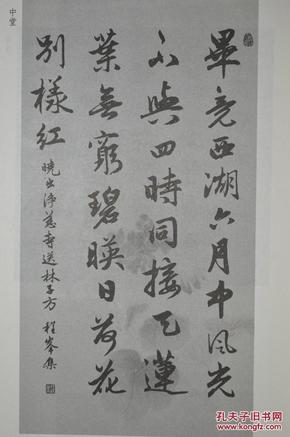 中堂
畢竟西湖六月中風光
不與四時同接天蓮
葉無窮碧映日荷花
別樣紅
曉出淨慈寺送林子方 程峰集
孔夫子旧书网
www.kongfz.com